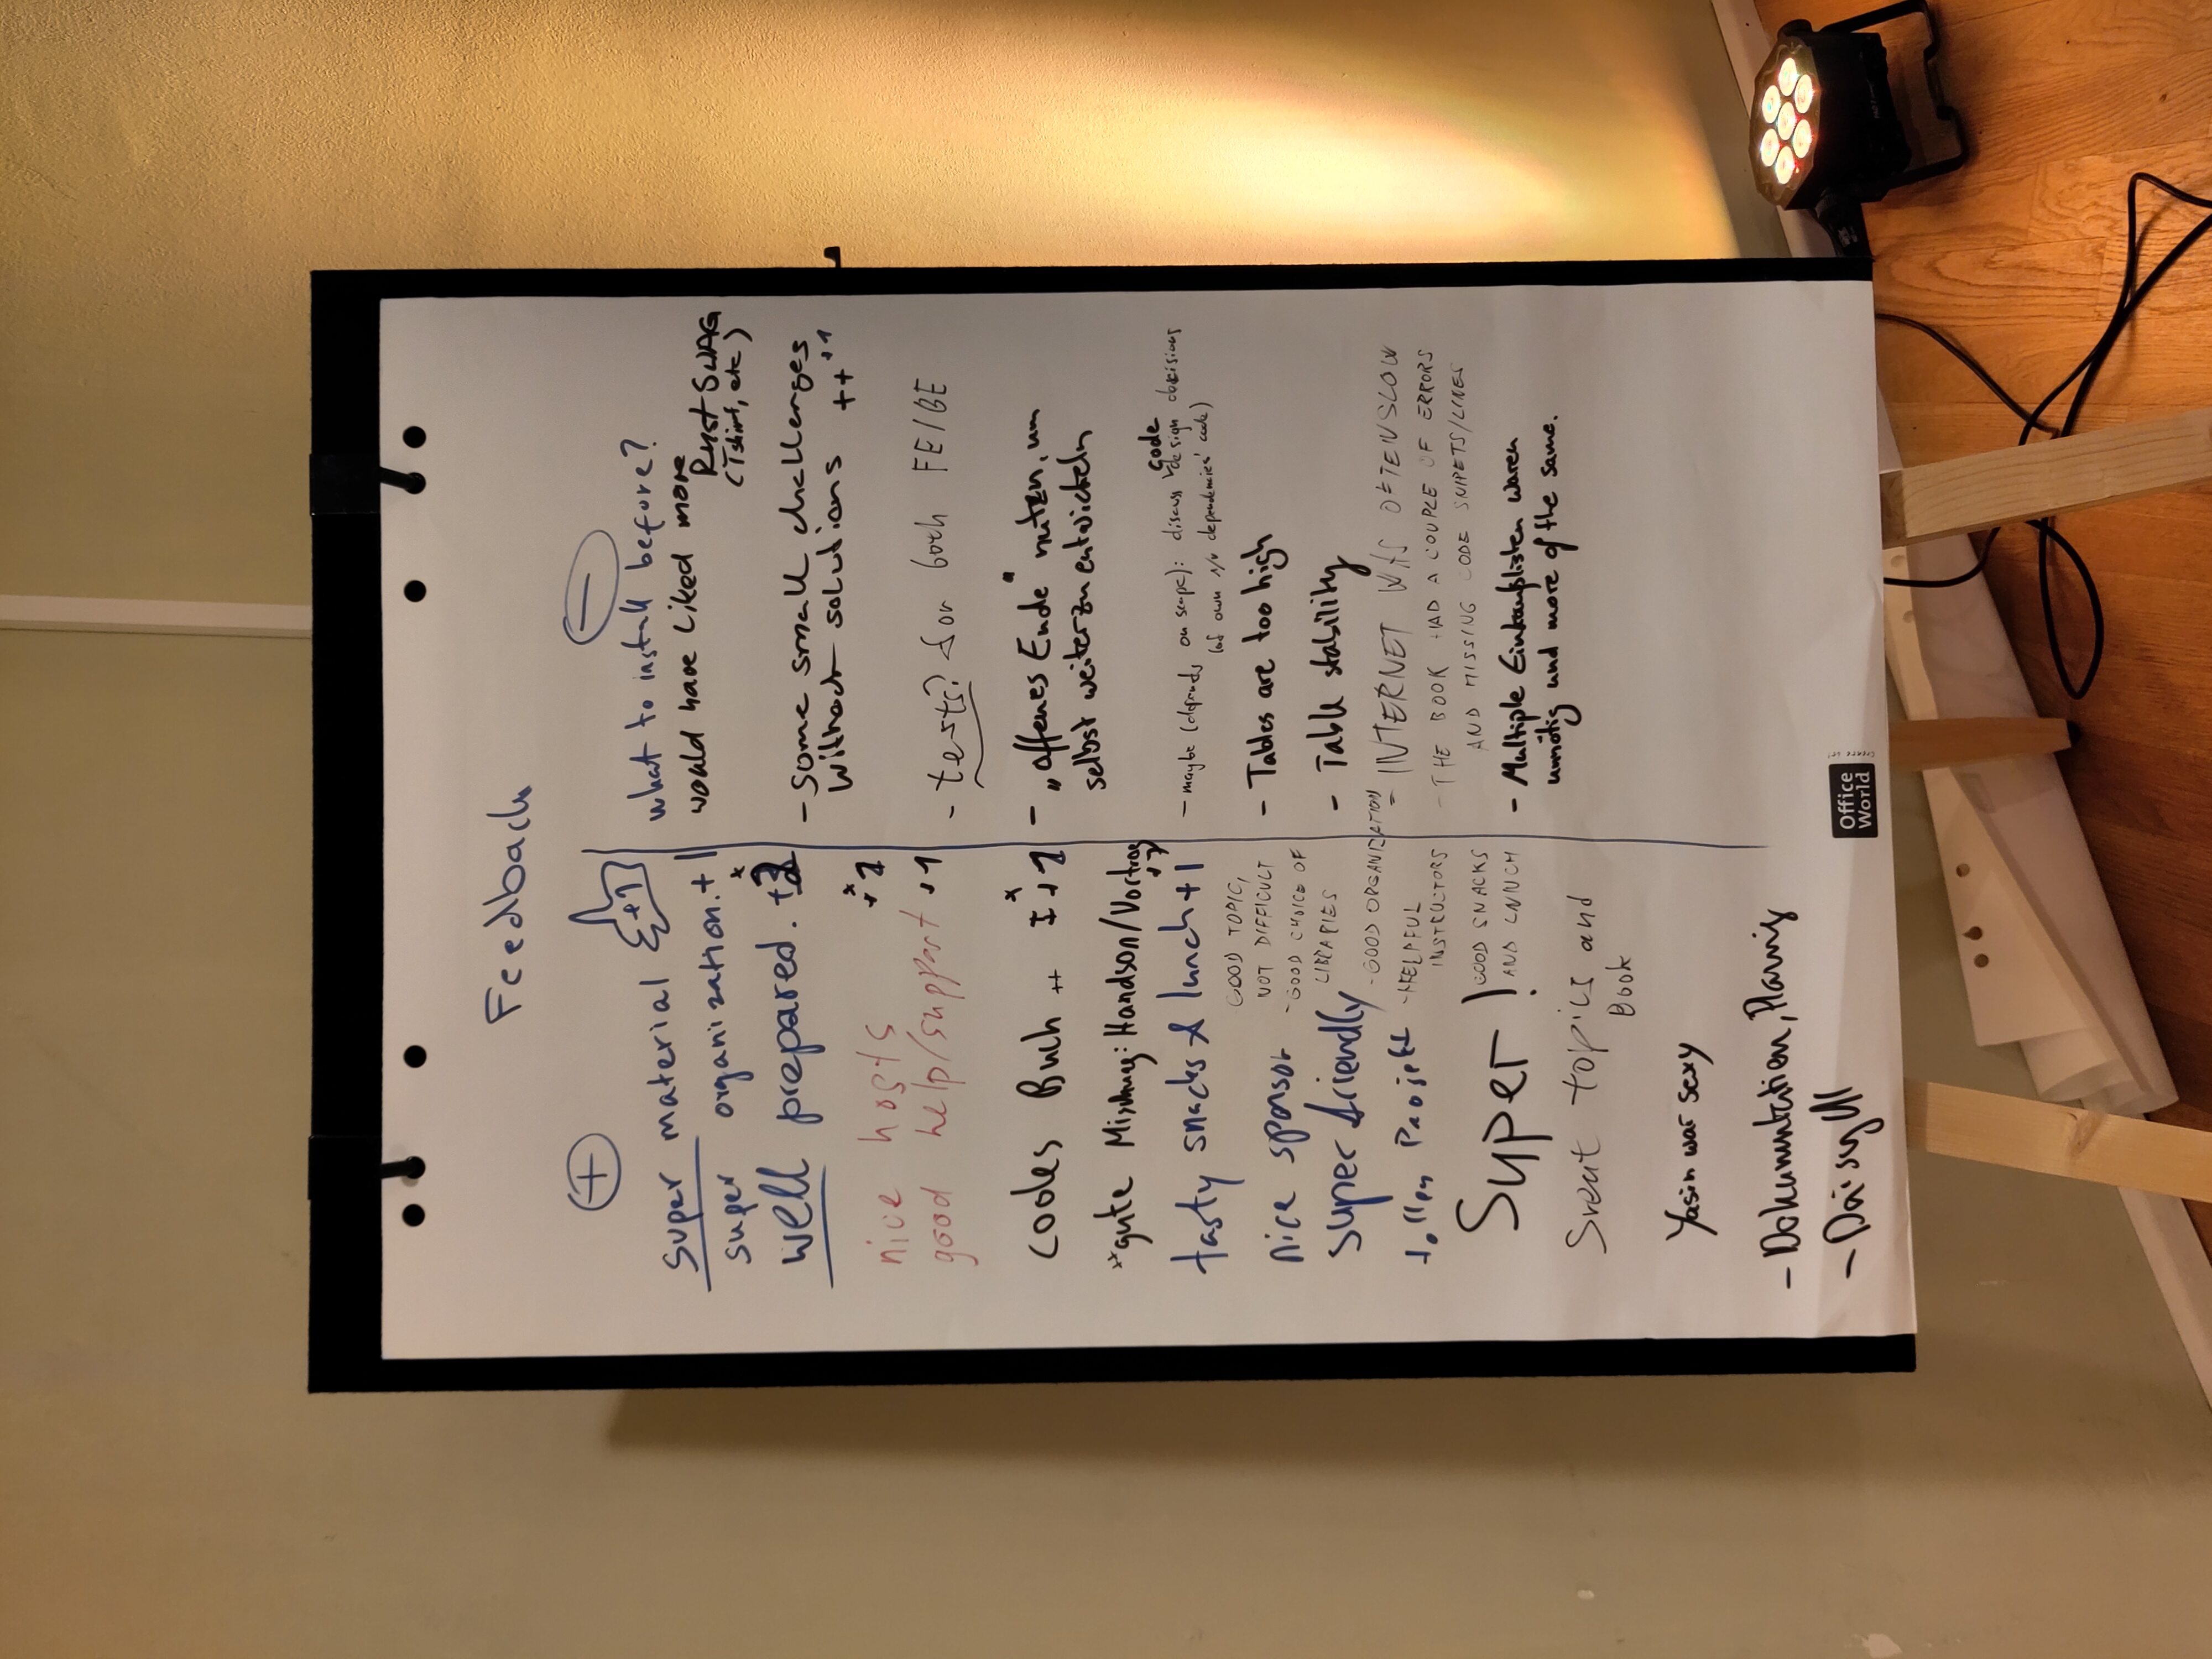 Feedback
+
super material +1
super organization. +1
well prepared.
nice hosts
good help/support +1
cooles Buch ++
++ gute Mischung: Handson/Vortrag
tasty snacks & lunch +1
GOOD TOPIC,
NOT DIFFICULT
nice sponsor
- GOOD CHOICE OF
LIBRARIES
super friendly
- GOOD ORGANIZATION
tolles Projekt
- HELPFUL
INSTRUCTORS
Super !
GOOD SNACKS
AND LUNCH
Great topics and
Book
Yasin war sexy
- Dokumentation, Planung
- Daisy UI
-
what to install before?
would have liked more
Rust SWAG
(Tshirt, etc)
- some small challenges
without solutions ++ +1
- tests? for both FE/BE
- „offenes Ende" nutzen, um
selbst weiterzuentwickeln
code
- maybe (depends on scope): discuss design decisions
(of own n/r dependencies' code)
- Tables are too high
- Table stability
- INTERNET WAS OFTEN SLOW
- THE BOOK HAD A COUPLE OF ERRORS
AND MISSING CODE SNIPETS/LINES
- Multiple Einkaufslisten waren
unnötig und more of the same.
Office
World